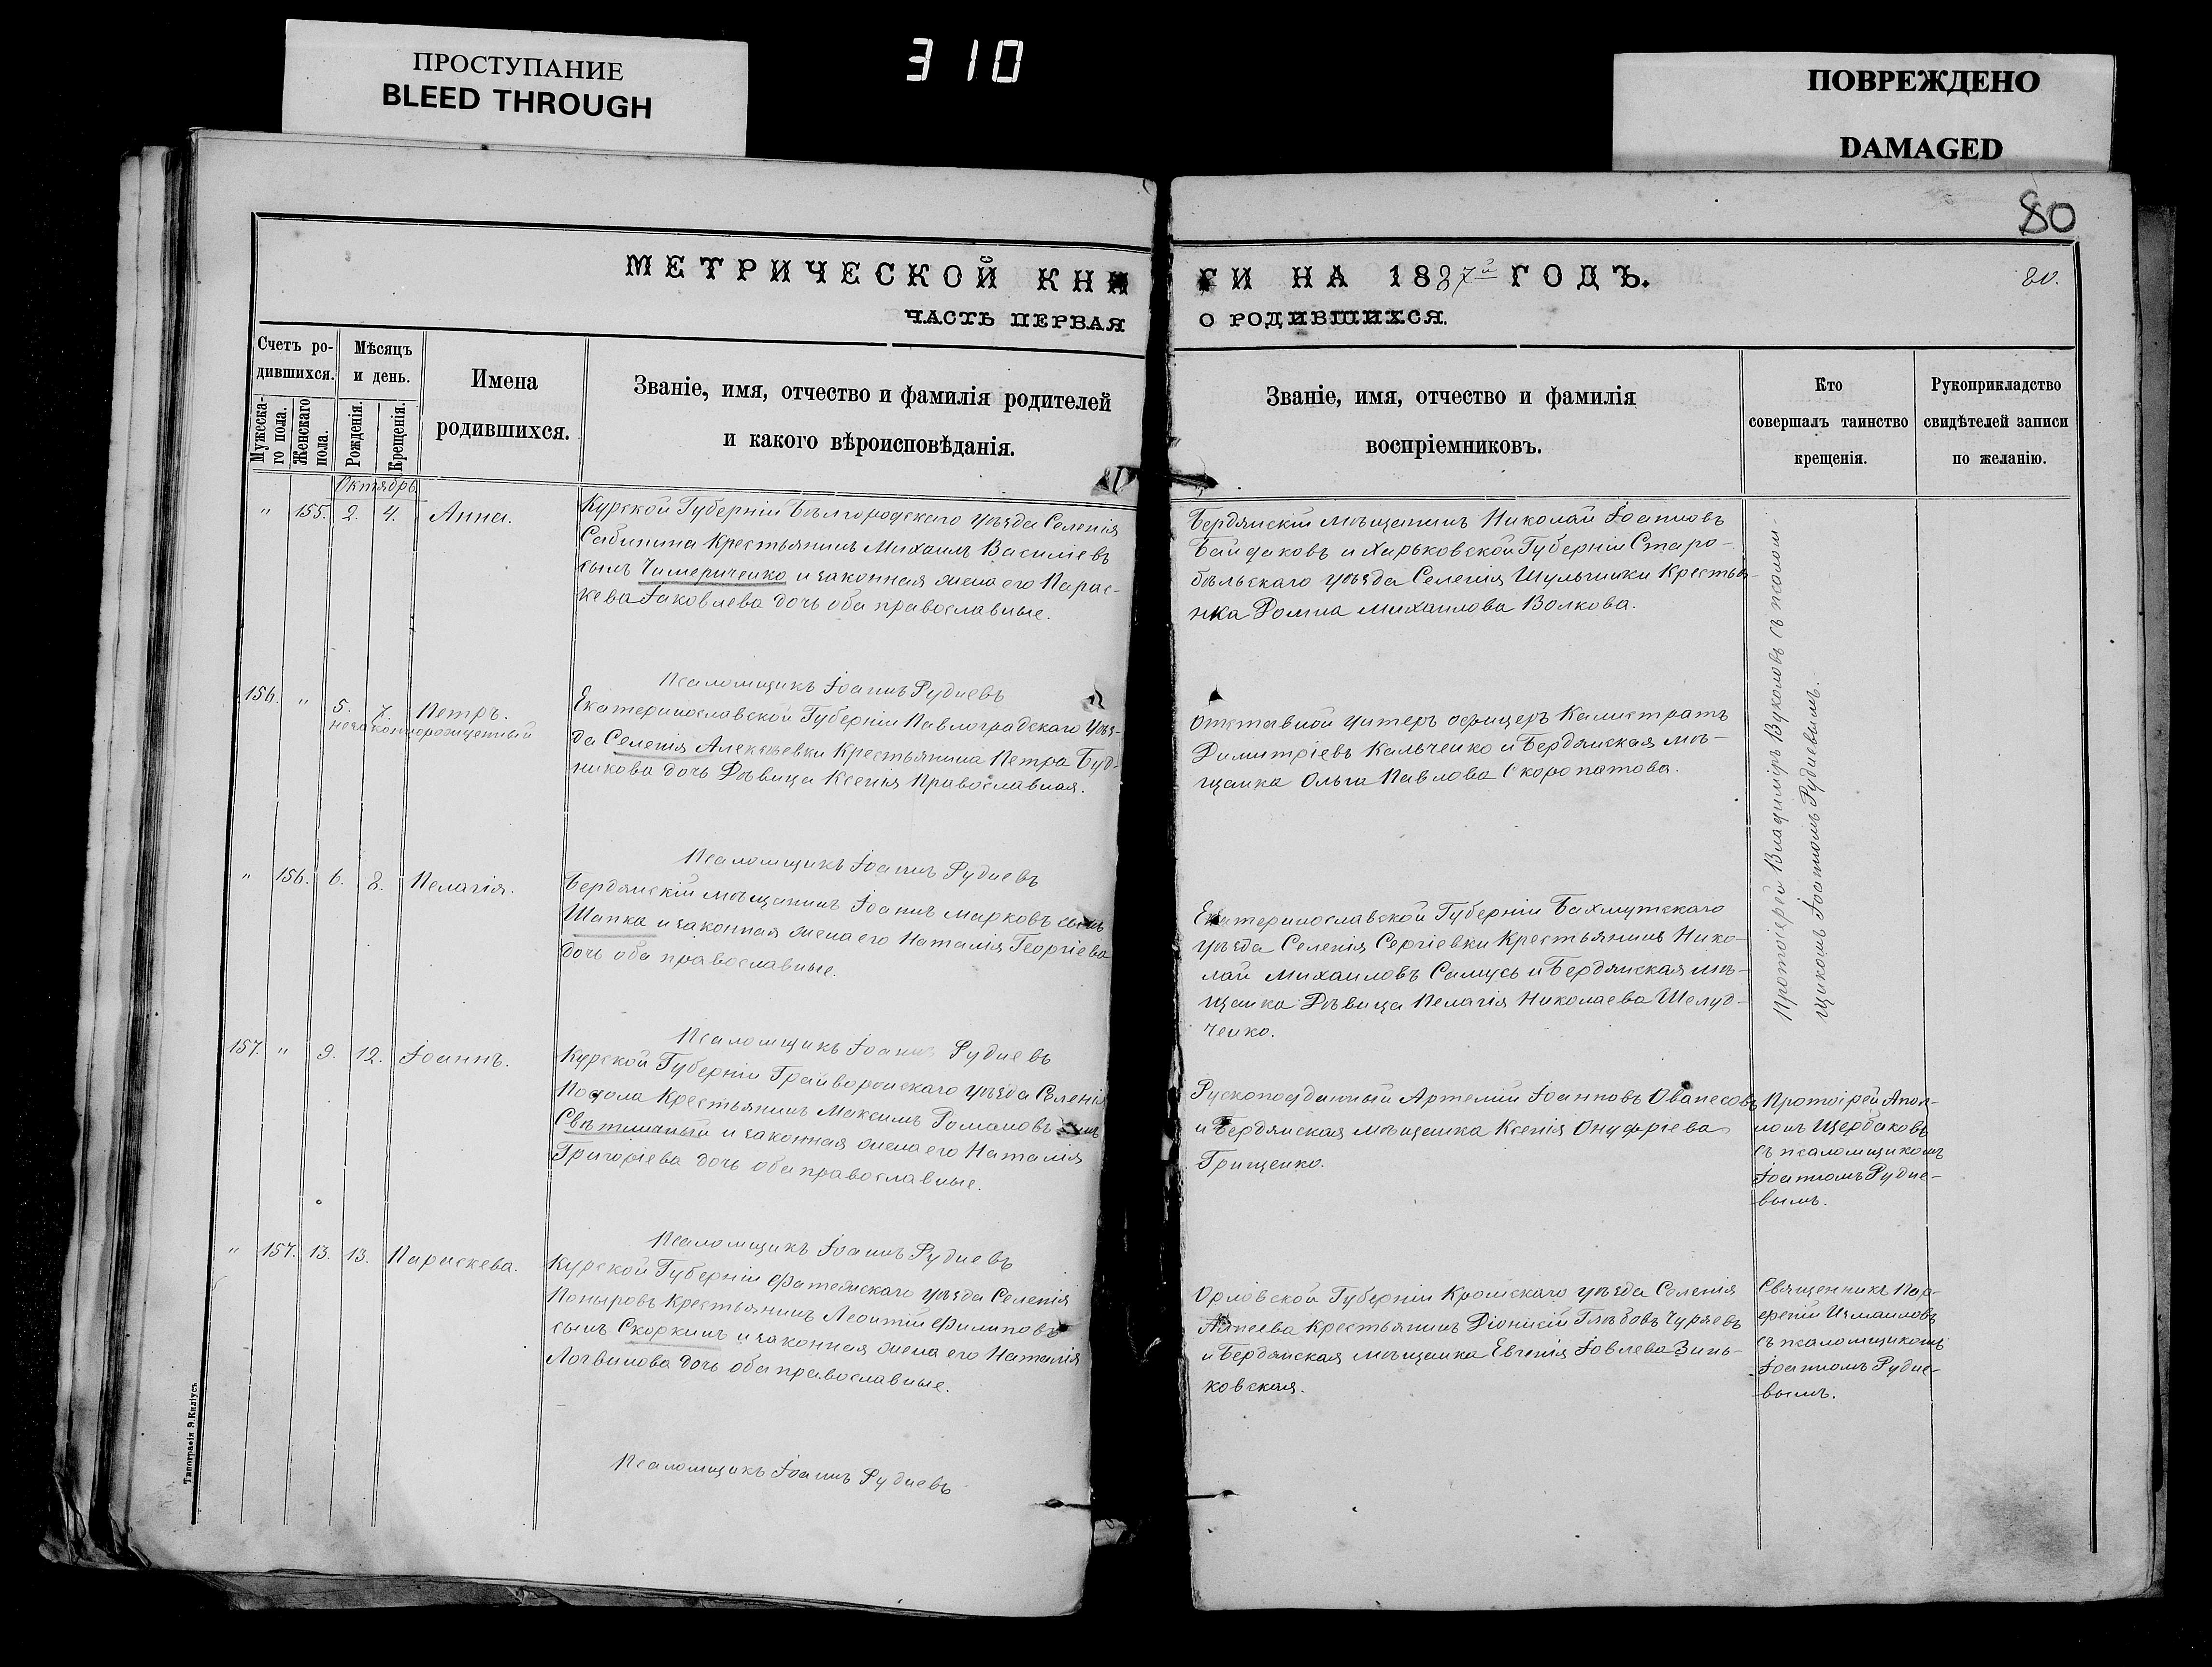 ПРОСТУПАНИЕ
BLEED THROUGH
310
ПОВРЕЖДЕНО
DAMAGED
80
МЕТРИЧЕСКОЙ КНИ
ГИ НА 1887й ГОДЪ.
80.
ЧАСТЬ ПЕРВАЯ
О РОДИВШИХСЯ.
Счетъ ро-
дившихся.
Мужеска-
го пола.
Женскаго
пола.
Мѣсяцъ
и день.
Рожденія.
Крещенія.
Имена
родившихся.
Званіе, имя, отчество и фамилія родителей
и какого вѣроисповѣданія.
Званіе, имя, отчество и фамилія
воспріемниковъ.
Кто
совершалъ таинство
крещенія.
Рукоприкладство
свидѣтелей записи
по желанію.
Октябрь
" 155. 2. 4. Анна.
Курской Губерніи Бѣлгородскаго уѣзда Селенія
Сабинина Крестьянинъ Михаилъ Василіевъ
сынъ Чимериченко и законная жена его Парас-
кева Іаковлева дочь оба православные.
Бердянскій мѣщанинъ Николай Іоанновъ
Байдаковъ и Харьковской Губерніи Старо-
бѣльскаго уѣзда Селенія Шульгинки Крестья-
нка Домна Михаилова Волкова.
Протоіерей Владиміръ Вуколовъ съ псалом-
щикомъ Іоанномъ Рудневымъ.
Псаломщикъ Іоаннъ Рудневъ
156. " 5. 7. Петръ.
незаконнорожденный
Екатеринославской Губерніи Павлоградскаго Уѣз-
да Селенія Алексѣевки Крестьянина Петра Буд-
никова дочь Дѣвица Ксенія Православная.
Отставной унтеръ офицеръ Калистратъ
Димитріевъ Кальченко и Бердянская мѣ-
щанка Ольга Павлова Скоропатова.
Псаломщикъ Іоаннъ Рудневъ
" 156. 6. 8. Пелагія.
Бердянскій мѣщанинъ Іоаннъ Марковъ сынъ
Шапка и законная жена его Наталія Георгіева
дочь оба православные.
Екатеринославской Губерніи Бахмутскаго
уѣзда Селенія Сергіевки Крестьянинъ Нико-
лай Михаиловъ Самусь и Бердянская мѣ-
щанка Дѣвица Пелагія Николаева Шелуд-
ченко.
Псаломщикъ Іоаннъ Рудневъ
157. " 9. 12. Іоаннъ.
Курской Губерніи Грайворонскаго уѣзда Селенія
Крестьянинъ Максимъ Романовъ сынъ
Свѣтличный и законная жена его Наталія
Григоріева дочь оба православные.
Рускоподданный Артемій Іоанновъ Ованесовъ
и Бердянская мѣщанка Ксенія Онуфріева
Грищенко.
Протоіерей Апол-
лонъ Щербаковъ
съ псаломщикомъ
Іоанномъ Рудне-
вымъ.
Псаломщикъ Іоаннъ Рудневъ
" 157. 13. 13. Параскева.
Курской Губерніи Фатежскаго уѣзда Селенія
Поныровъ Крестьянинъ Леонтій Филиповъ
сынъ Скоркинъ и законная жена его Наталія
Логвинова дочь оба православные.
Орловской Губерніи Кромскаго уѣзда Селенія
Крестьянинъ Діонисій Глѣбовъ Чуряевъ
и Бердянская мѣщанка Евгенія Іовлева Зинь-
ковская.
Священникъ Пар-
феній Измаиловъ
съ псаломщикомъ
Іоанномъ Рудне-
вымъ.
Псаломщикъ Іоаннъ Рудневъ
Типографія Э.Киліусъ